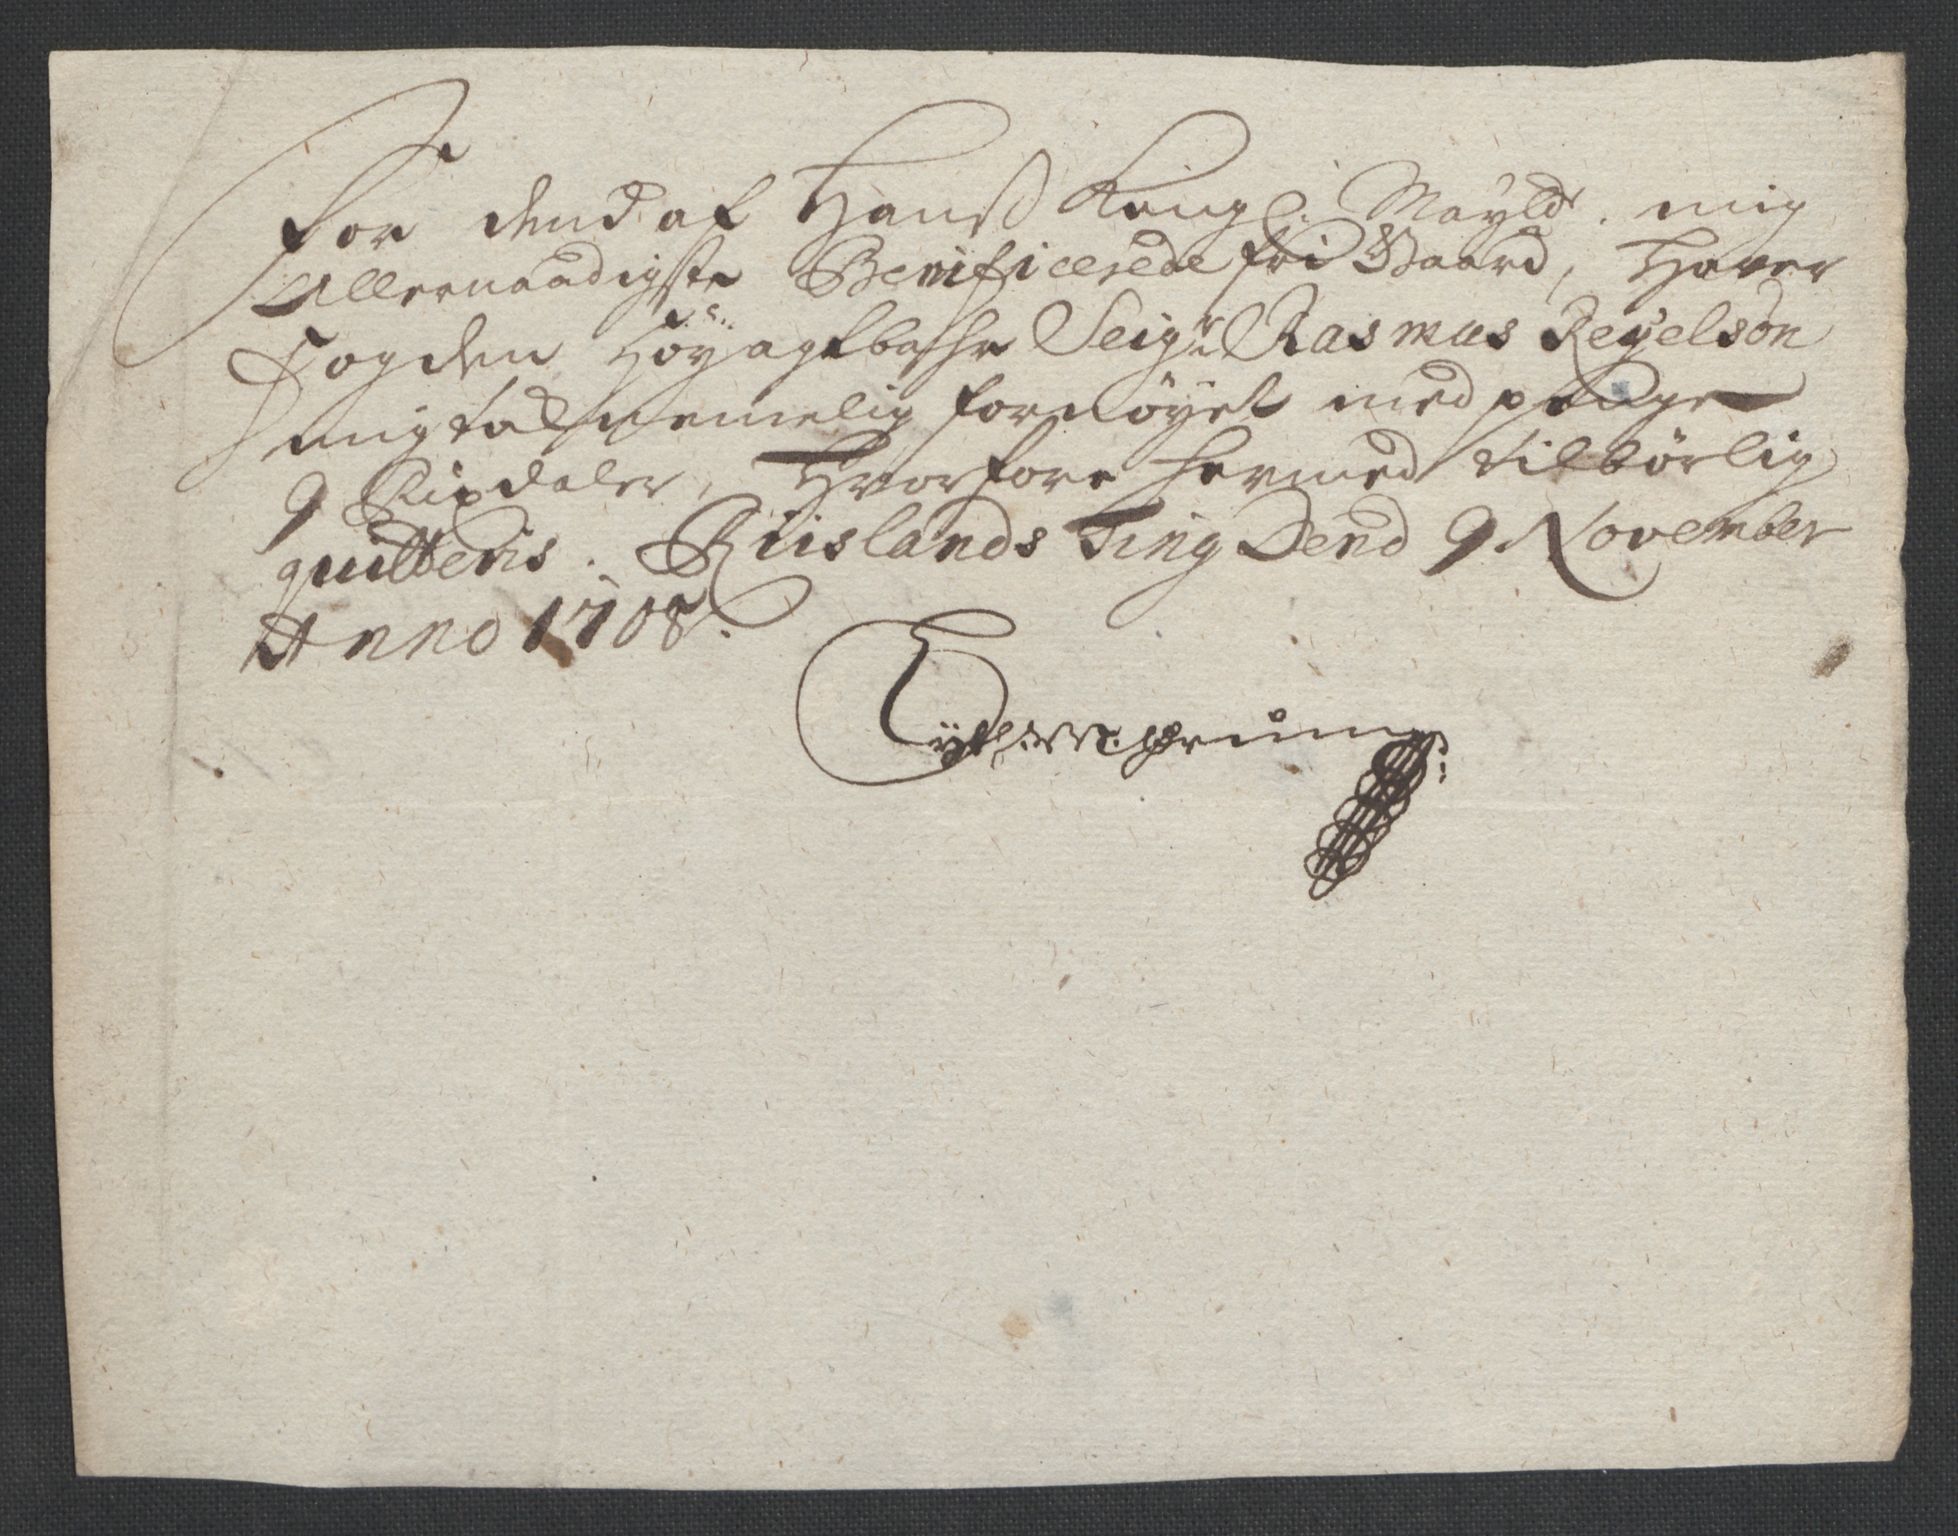 For dend af Hanß Kongl: Mayst. mig
Allernaadigste Benificerede fri Gaard, Haver
Fogden Höyagtbahre Seigr Rasmus Regelson
mig fornöyet med penge
9 Rixdaler, Hvorfore hermed tilbörlig
quitteris. Riislands Ting Dend 9 November
Anno 1708.